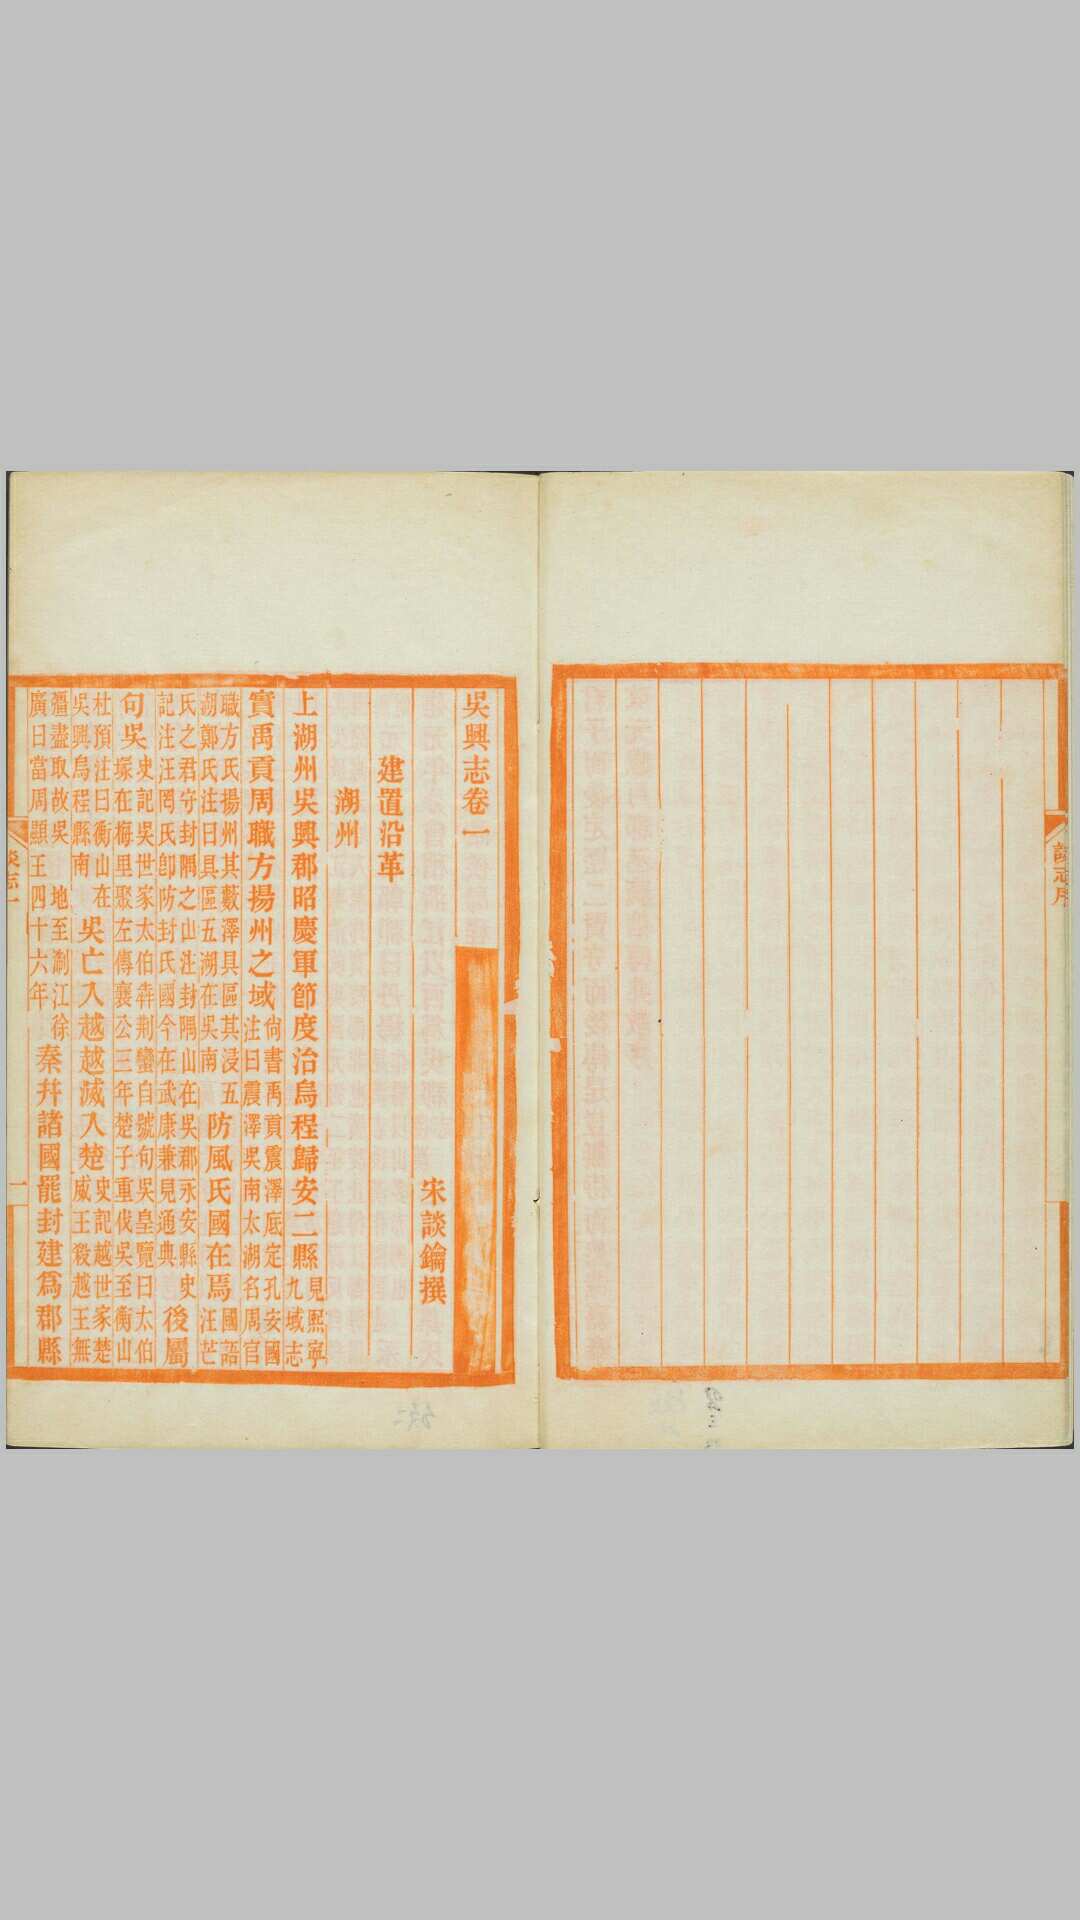 談志序
吳興志卷一
宋談鑰撰
建置沿革
湖州
上湖州吳興郡昭慶軍節度治烏程歸安二縣見熙寧九域志
實禹貢周職方揚州之域尚書禹貢震澤底定孔安國注曰震澤吳南太湖名周官
職方氏揚州其藪澤具區其浸五湖鄭氏注曰具區五湖在吳南防風氏國在焉國語汪芒
氏之君守封隅之山注封隅山在吳郡永安縣史記注汪罔氏卽防封氏國今在武康兼見通典後屬
句吳史記吳世家太伯犇荆蠻自號句吳皇覽曰太伯冢在梅里聚左傳襄公三年楚子重伐吳至衡山
杜預注曰衡山在吳興烏程縣南吳亡入越越滅入楚史記越世家楚威王殺越王無
彊盡取故吳地至淛江徐廣曰當周顯王四十六年秦幷諸國罷封建爲郡縣
談志一
一